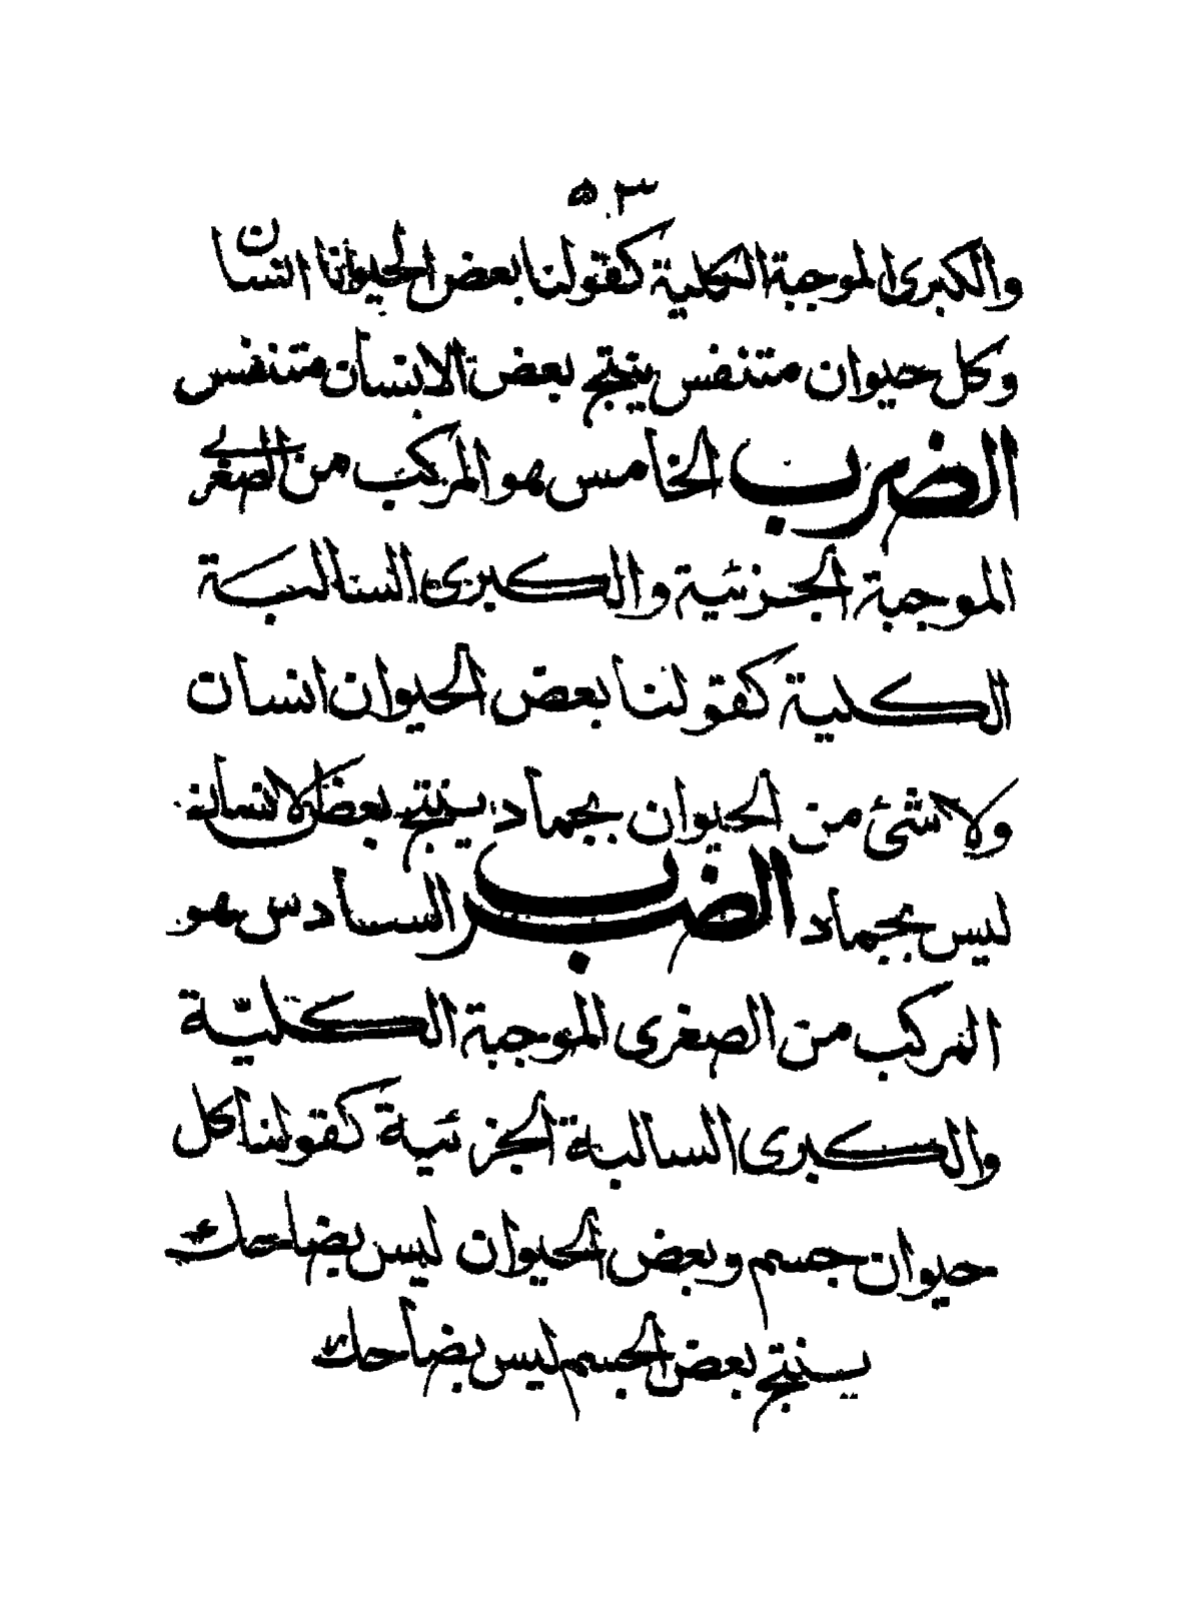 ٥٣
والكبرى الموجبة الكلية كقولنا بعض الحيوان انسان
وكل حيوان متنفس ينتج بعض الانسان متنفس
الضرب الخامس هو المركب من الصغرى
الموجبة الجزئية والكبرى السالبة
الكلية كقولنا بعض الحيوان انسان
ولا شئ من الحيوان بجماد ينتج بعض الانسان
ليس بجماد الضرب السادس هو
المركب من الصغرى الموجبة الكليّة
والكبرى السالبة الجزئية كقولنا كل
حيوان جسم وبعض الحيوان ليس بضاحك
ينتج بعض الجسم ليس بضاحك